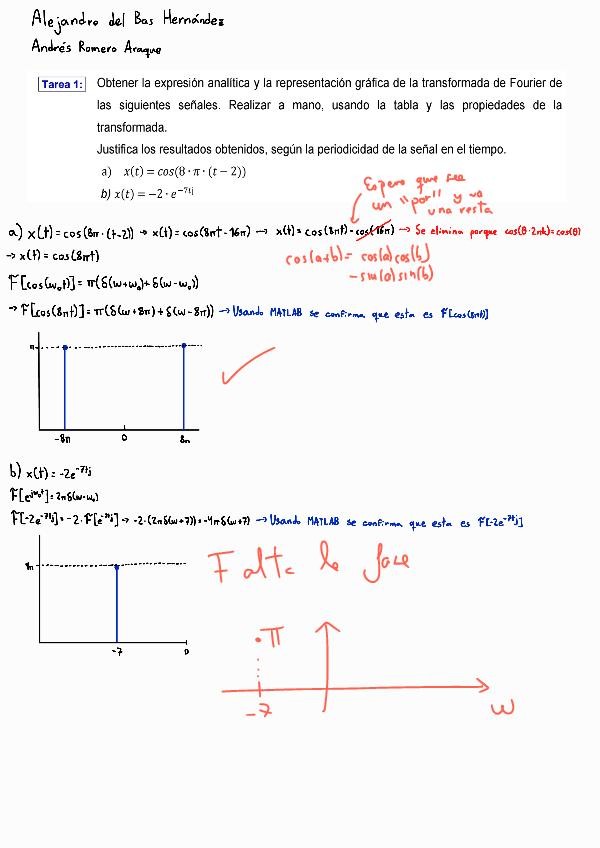 Alejandro del Bas Hernández
Andrés Romero Araque
Tarea 1: Obtener la expresión analítica y la representación gráfica de la transformada de Fourier de
las siguientes señales. Realizar a mano, usando la tabla y las propiedades de la
transformada.
Justifica los resultados obtenidos, según la periodicidad de la señal en el tiempo.
a) x(t) = cos(8 · π · (t − 2))
b) x(t) = −2 · e^{−7tj}
Espero que sea
un "por" y no
una resta
a) x(t) = cos(8π · (t-2)) → x(t) = cos(8πt - 16π) → x(t) = cos(8πt) - cos(16π) → Se elimina porque cos(θ · 2πk) = cos(θ)
→ x(t) = cos(8πt)
cos(a+b) = cos(a) cos(b)
- sin(a) sin(b)
F[cos(ω₀t)] = π(δ(ω+ω₀) + δ(ω-ω₀))
→ F[cos(8πt)] = π(δ(ω+8π) + δ(ω-8π)) → Usando MATLAB se confirma que esta es F[cos(8πt)]
π
-8π 0 8π
b) x(t) = -2e^{-7tj}
F[e^{jω₀t}] = 2πδ(ω-ω₀)
F[-2e^{-7tj}] = -2 · F[e^{-7tj}] → -2 · (2πδ(ω+7)) = -4πδ(ω+7) → Usando MATLAB se confirma que esta es F[-2e^{-7tj}]
-7 0
Falta la fase
π
-7
ω